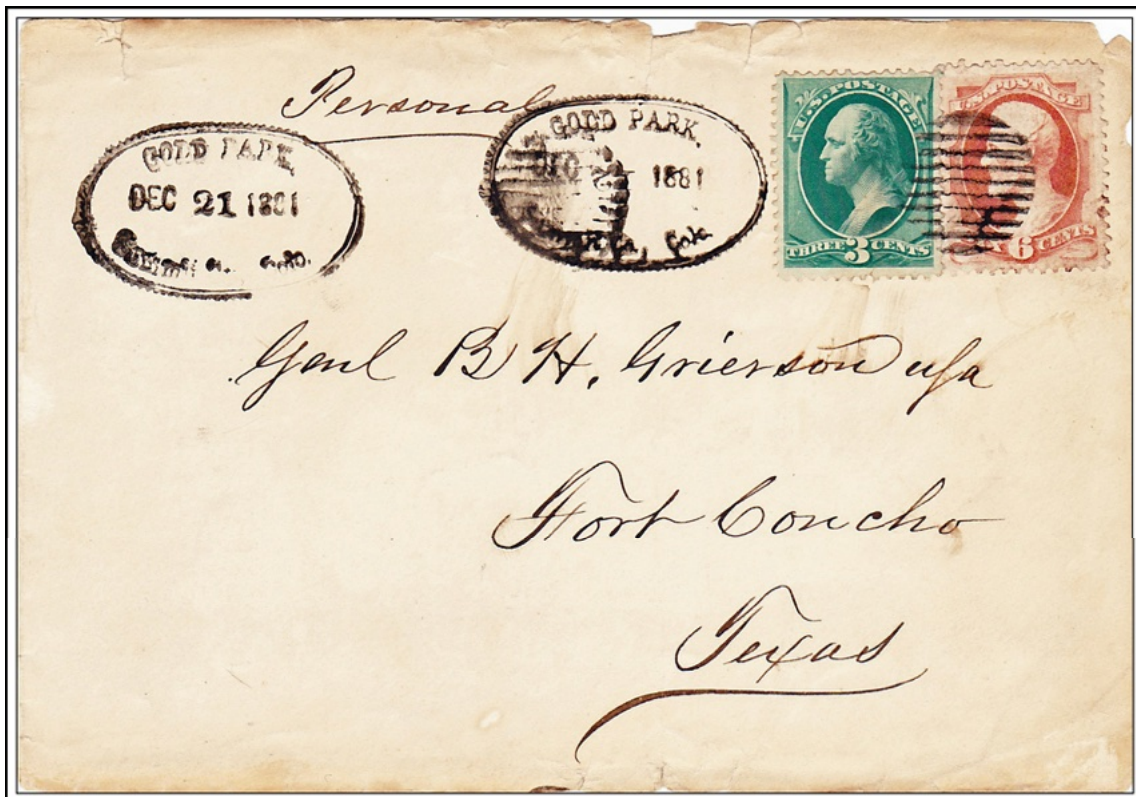 Personal
GOLD PARK.
DEC 21 1881
Colo.
GOLD PARK.
1881
Co., Colo.
U.S. POSTAGE
THREE 3 CENTS
U.S. POSTAGE
SIX 6 CENTS
Genl B H. Grierson usa
Fort Concho
Texas